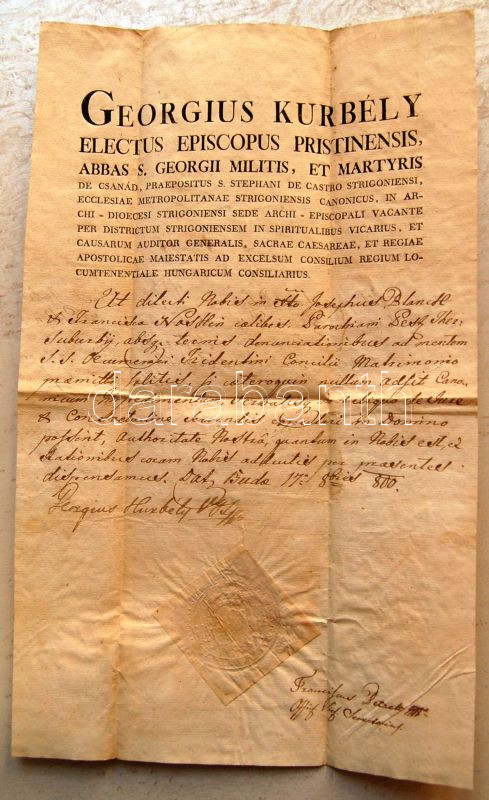 GEORGIUS KURBÉLY
ELECTUS EPISCOPUS PRISTINENSIS,
ABBAS S. GEORGII MILITIS, ET MARTYRIS
DE CSANÁD, PRAEPOSITUS S. STEPHANI DE CASTRO STRIGONIENSI,
ECCLESIAE METROPOLITANAE STRIGONIENSIS CANONICUS, IN AR-
CHI-DIOECESI STRIGONIENSI SEDE ARCHI-EPISCOPALI VACANTE
PER DISTRICTUM STRIGONIENSEM IN SPIRITUALIBUS VICARIUS, ET
CAUSARUM AUDITOR GENERALIS, SACRAE CAESAREAE, ET REGIAE
APOSTOLICAE MAIESTATIS AD EXCELSUM CONSILIUM REGIUM LO-
CUMTENENTIALE HUNGARICUM CONSILIARIUS.
Ut dilecti Nobis in Xto Josephus
& Francisca caelibes Parochiani Pest
Suburbij, absq. ternis denunciationibus ad mentem
S. S. Oecumenici Tridentini Concilii Matrimonio
praemitti solitis, si caeteroquin nullum adsit Cano-
nicum
& in Domino
possint, Authoritate Nostra, quantum in Nobis est, ex
rationibus coram Nobis adductis per praesentes
dispensamus. Dat. Buda 17 8bris 800.
Georgius Kurbély
darabanth
Franciscus